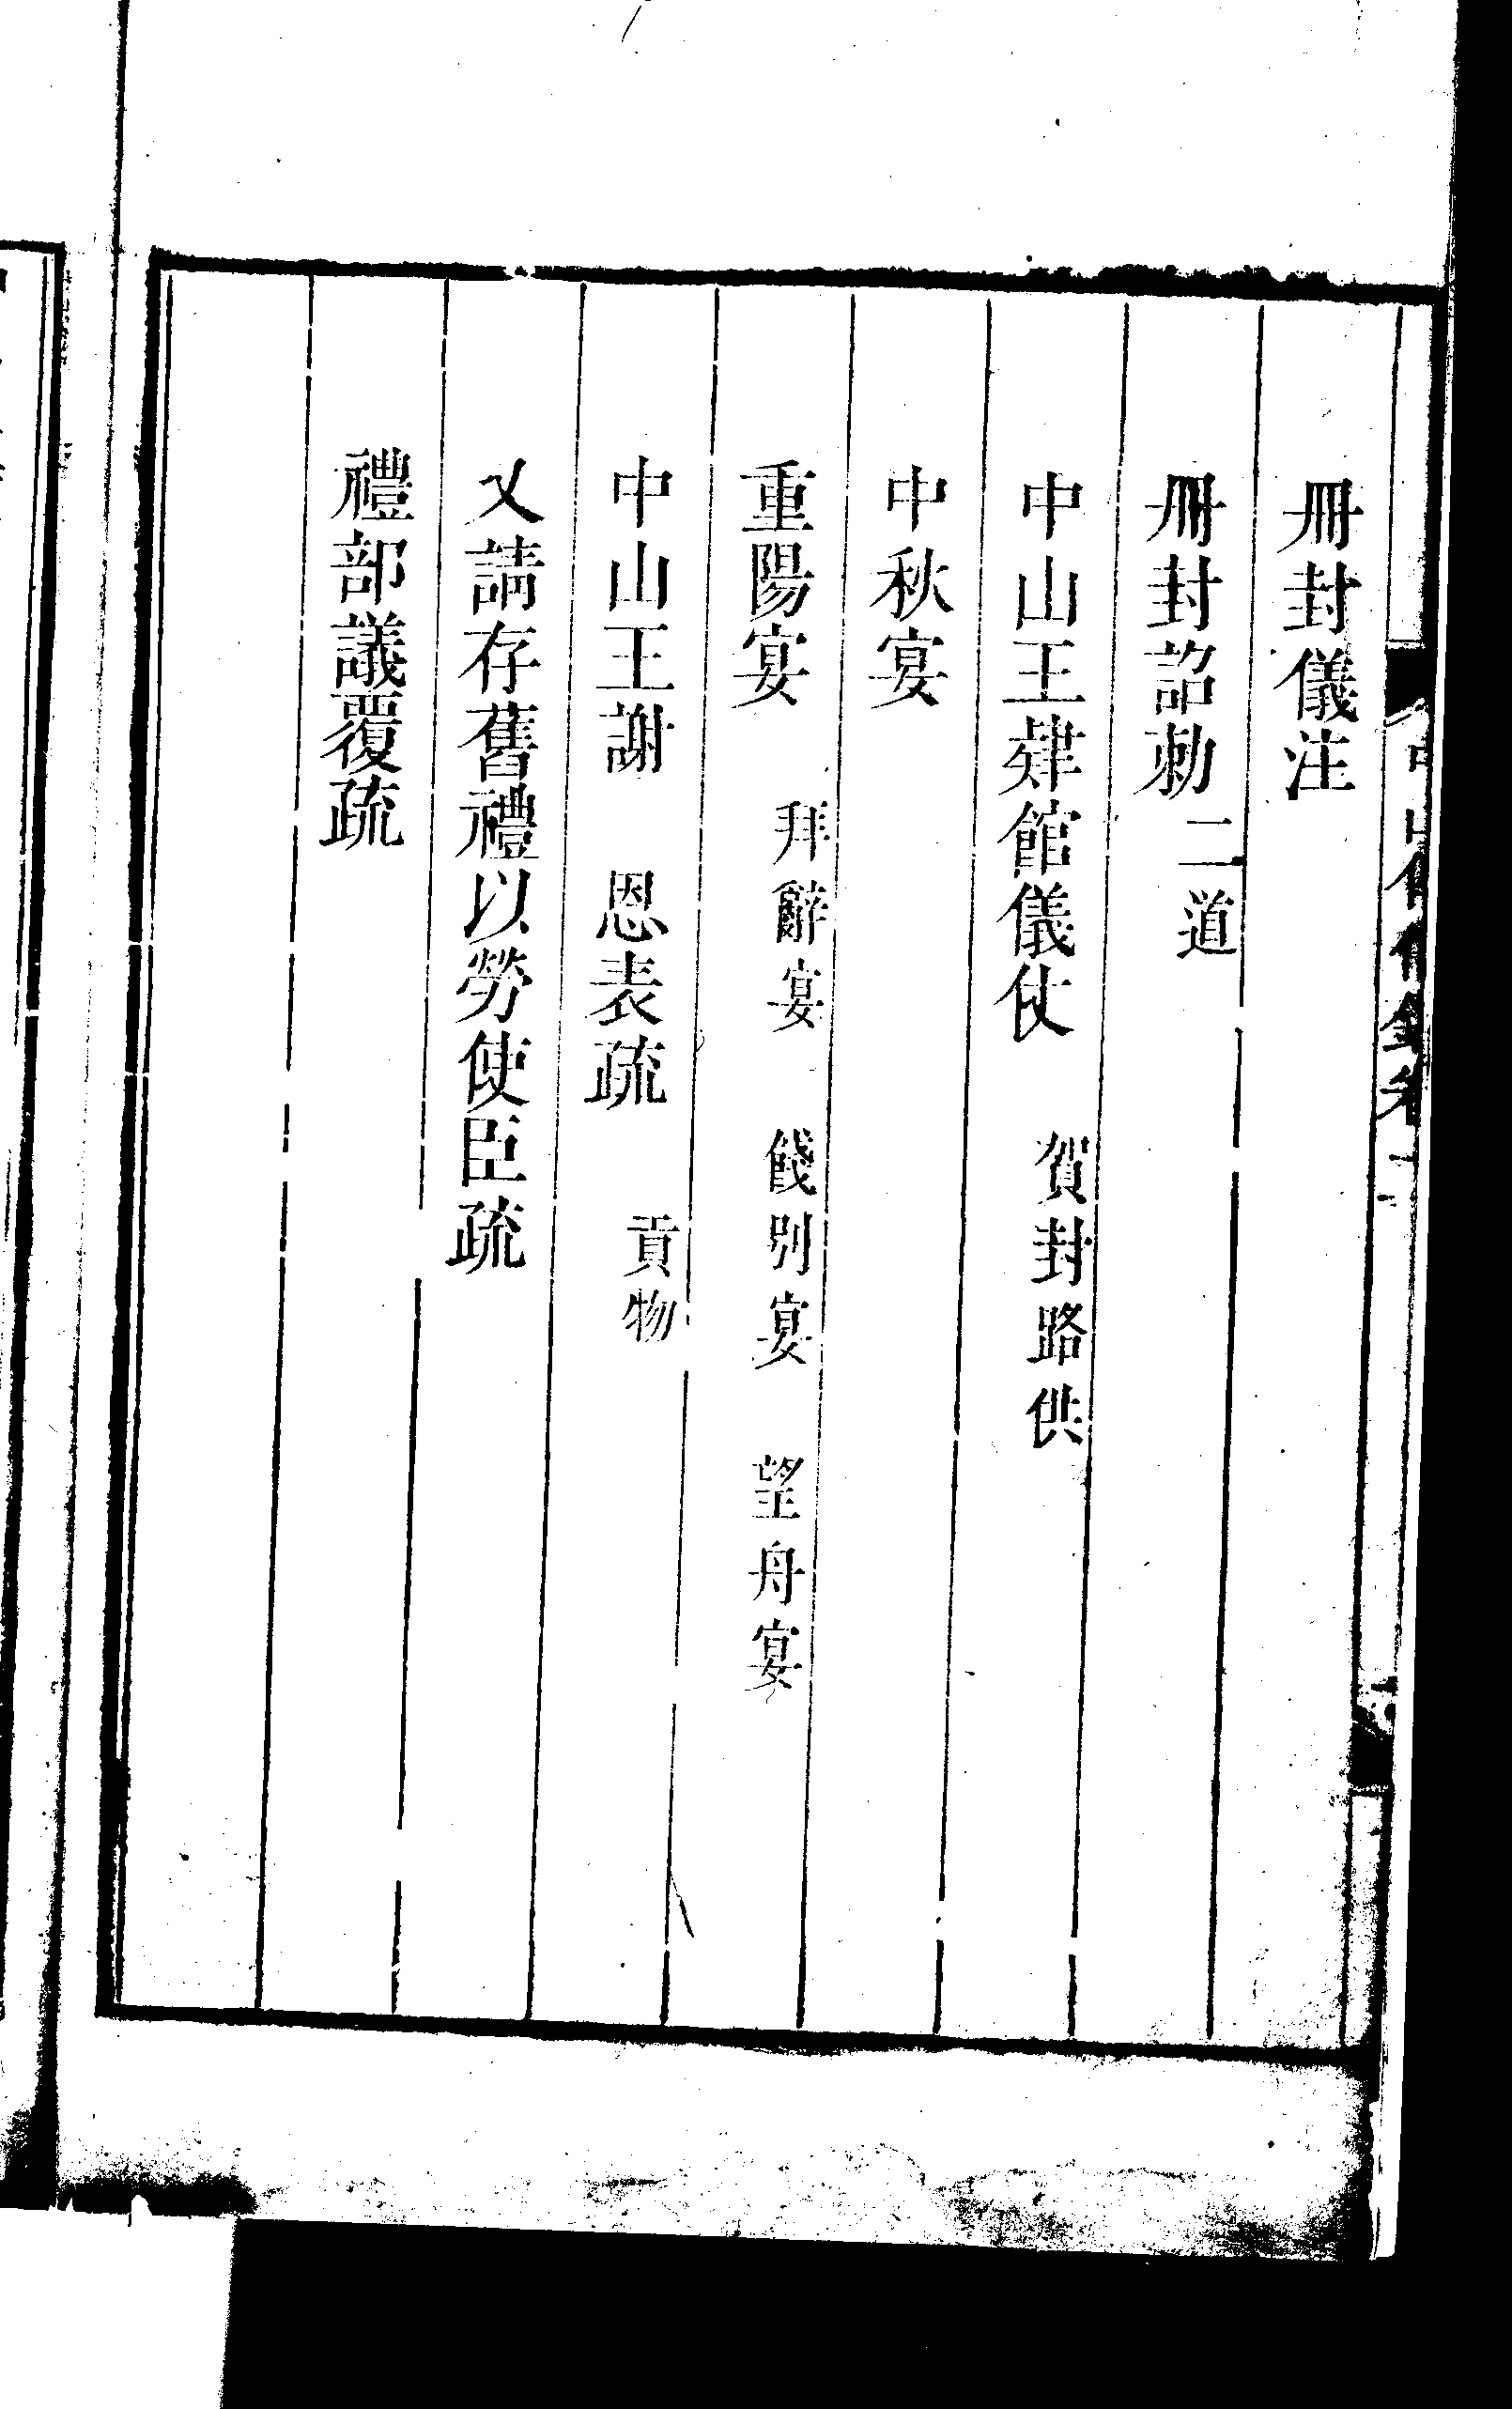 冊封儀注
冊封詔勅 二道
中山王肄館儀仗 賀封路供
中秋宴
重陽宴 拜辭宴 餞别宴 望舟宴
中山王謝 恩表疏 貢物
又請存舊禮以勞使臣疏
禮部議覆疏